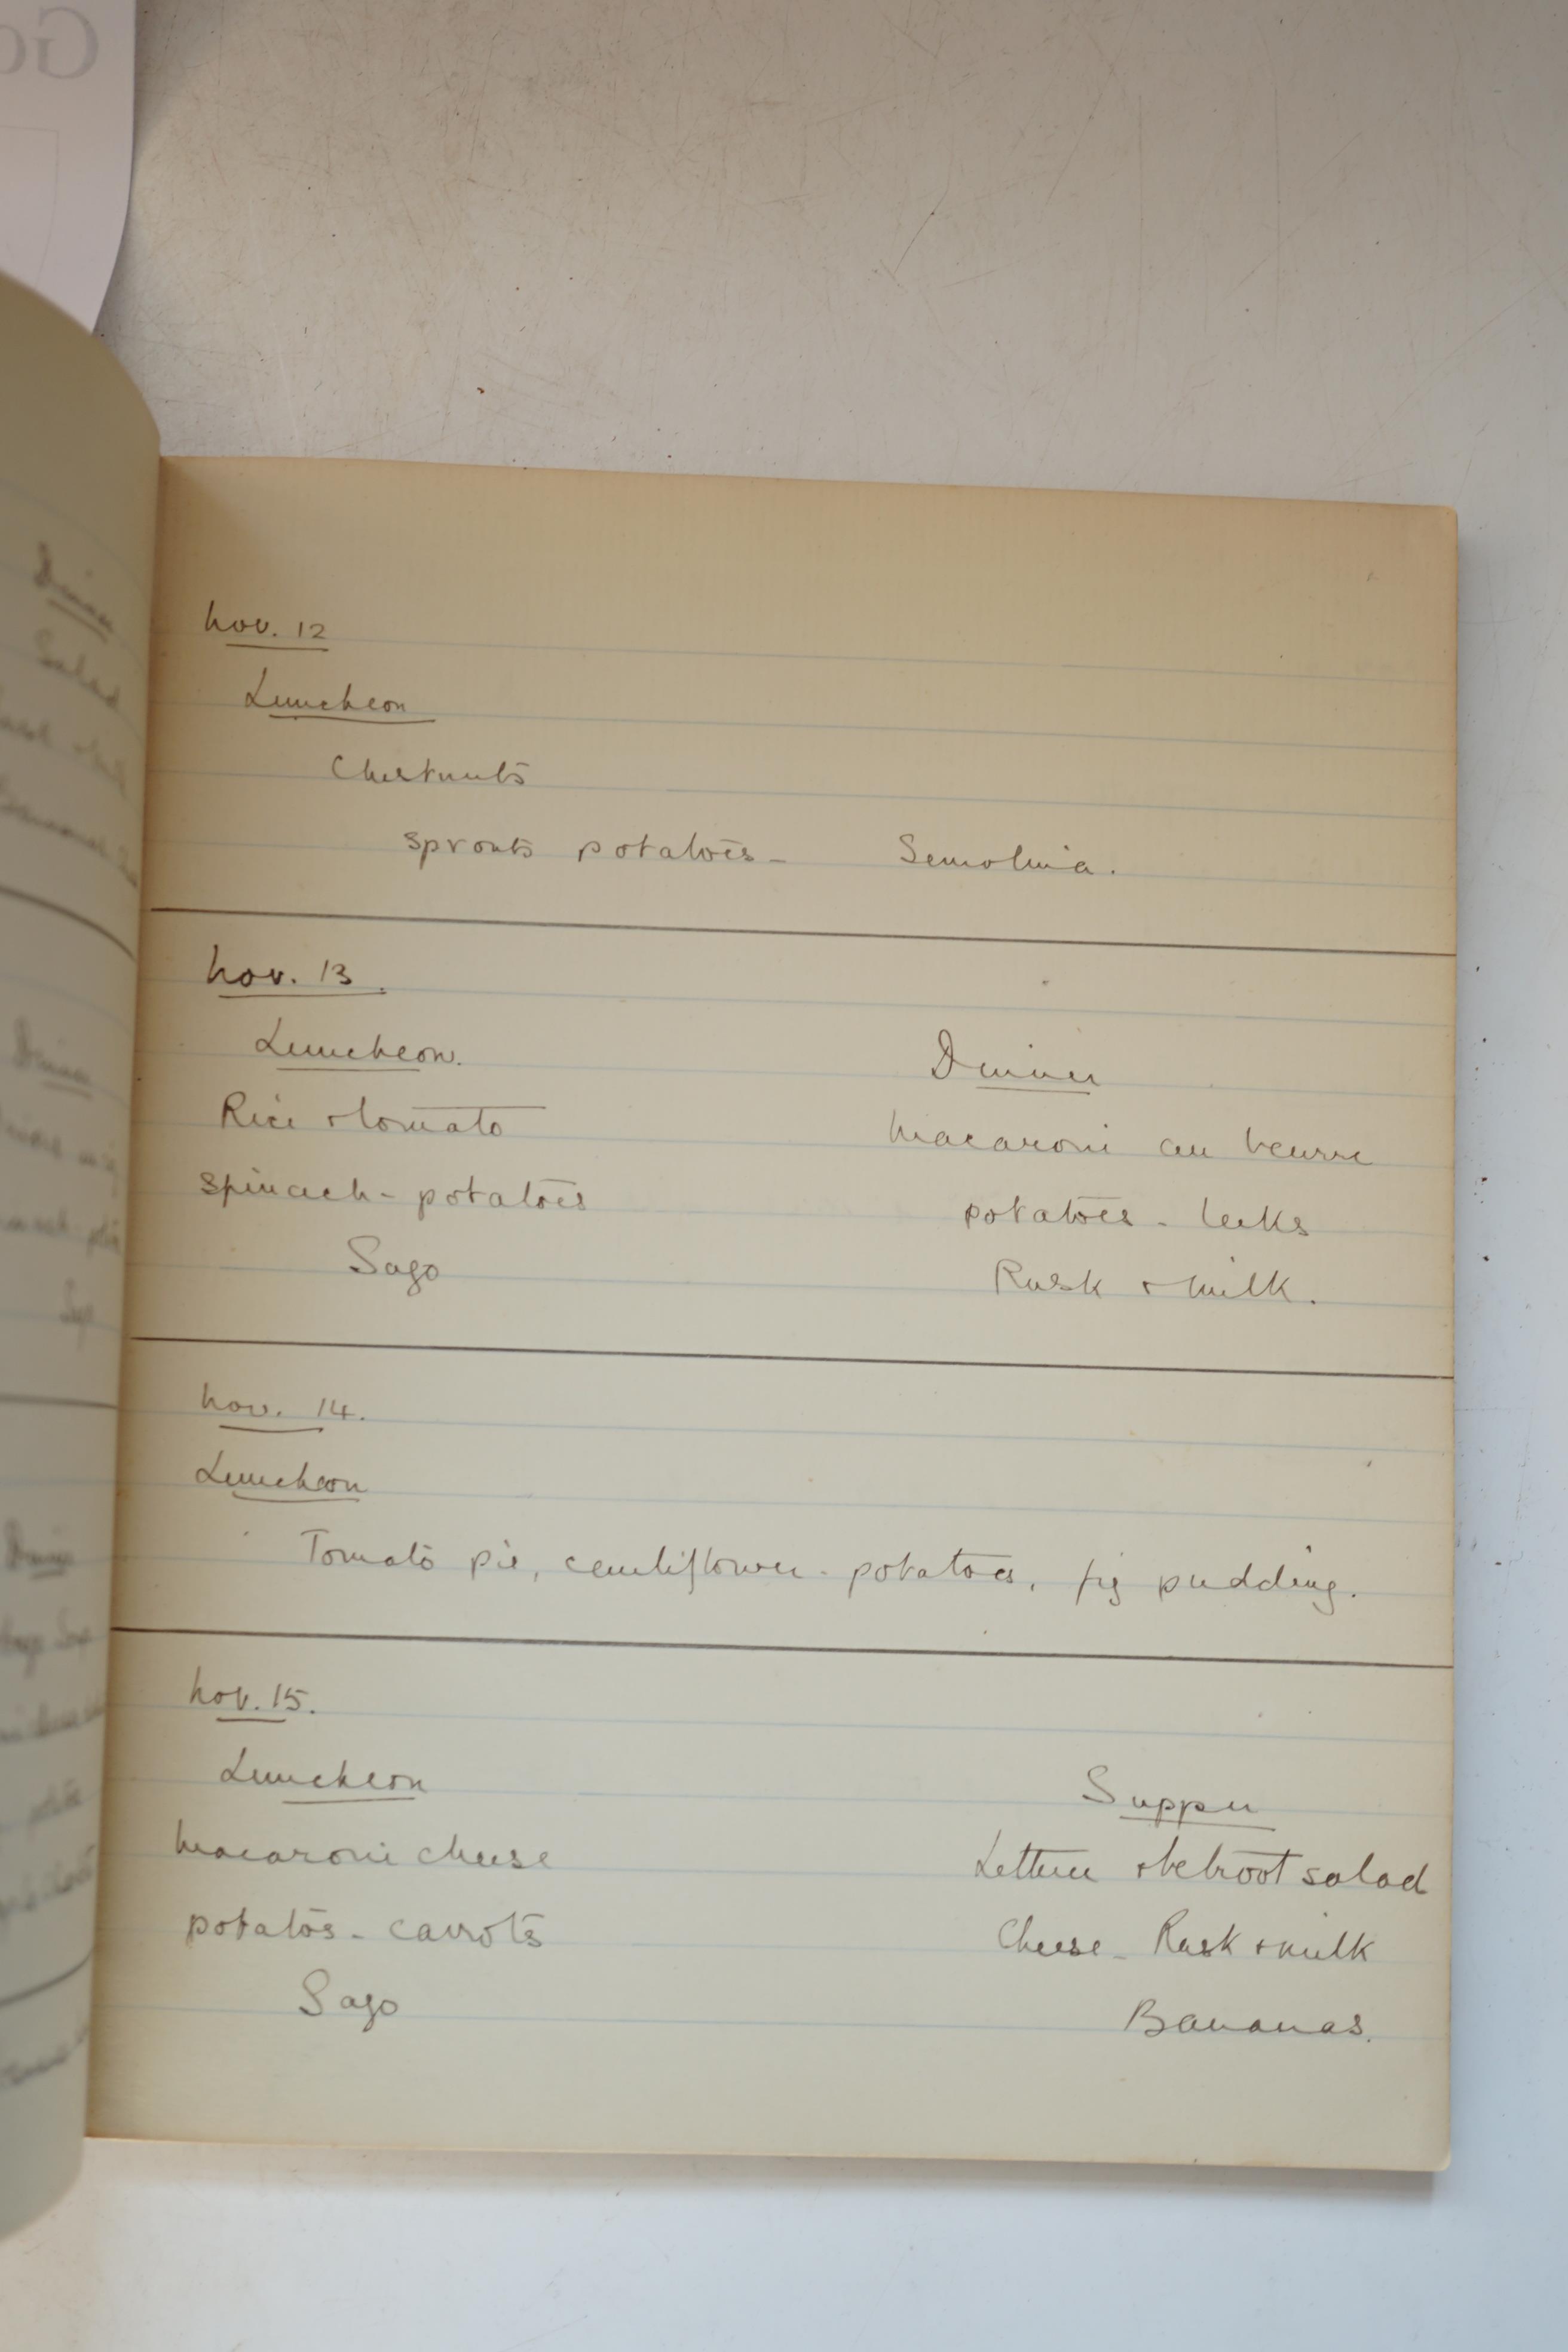 Go
Nov. 12
Luncheon
Chestnuts
sprouts potatoes - Semolina.
Nov. 13.
Luncheon. Dinner
Rice & tomato Macaroni au beurre
spinach - potatoes potatoes - leeks
Sago Rusk & milk.
Nov. 14.
Luncheon
Tomato pie, cauliflower - potatoes, fig pudding.
Nov. 15.
Luncheon Supper
Macaroni cheese Lettuce & betroot salad
potatos - carrots Cheese - Rusk & milk
Sago Bananas.
Dinner
Salad
Dinner
Dinner